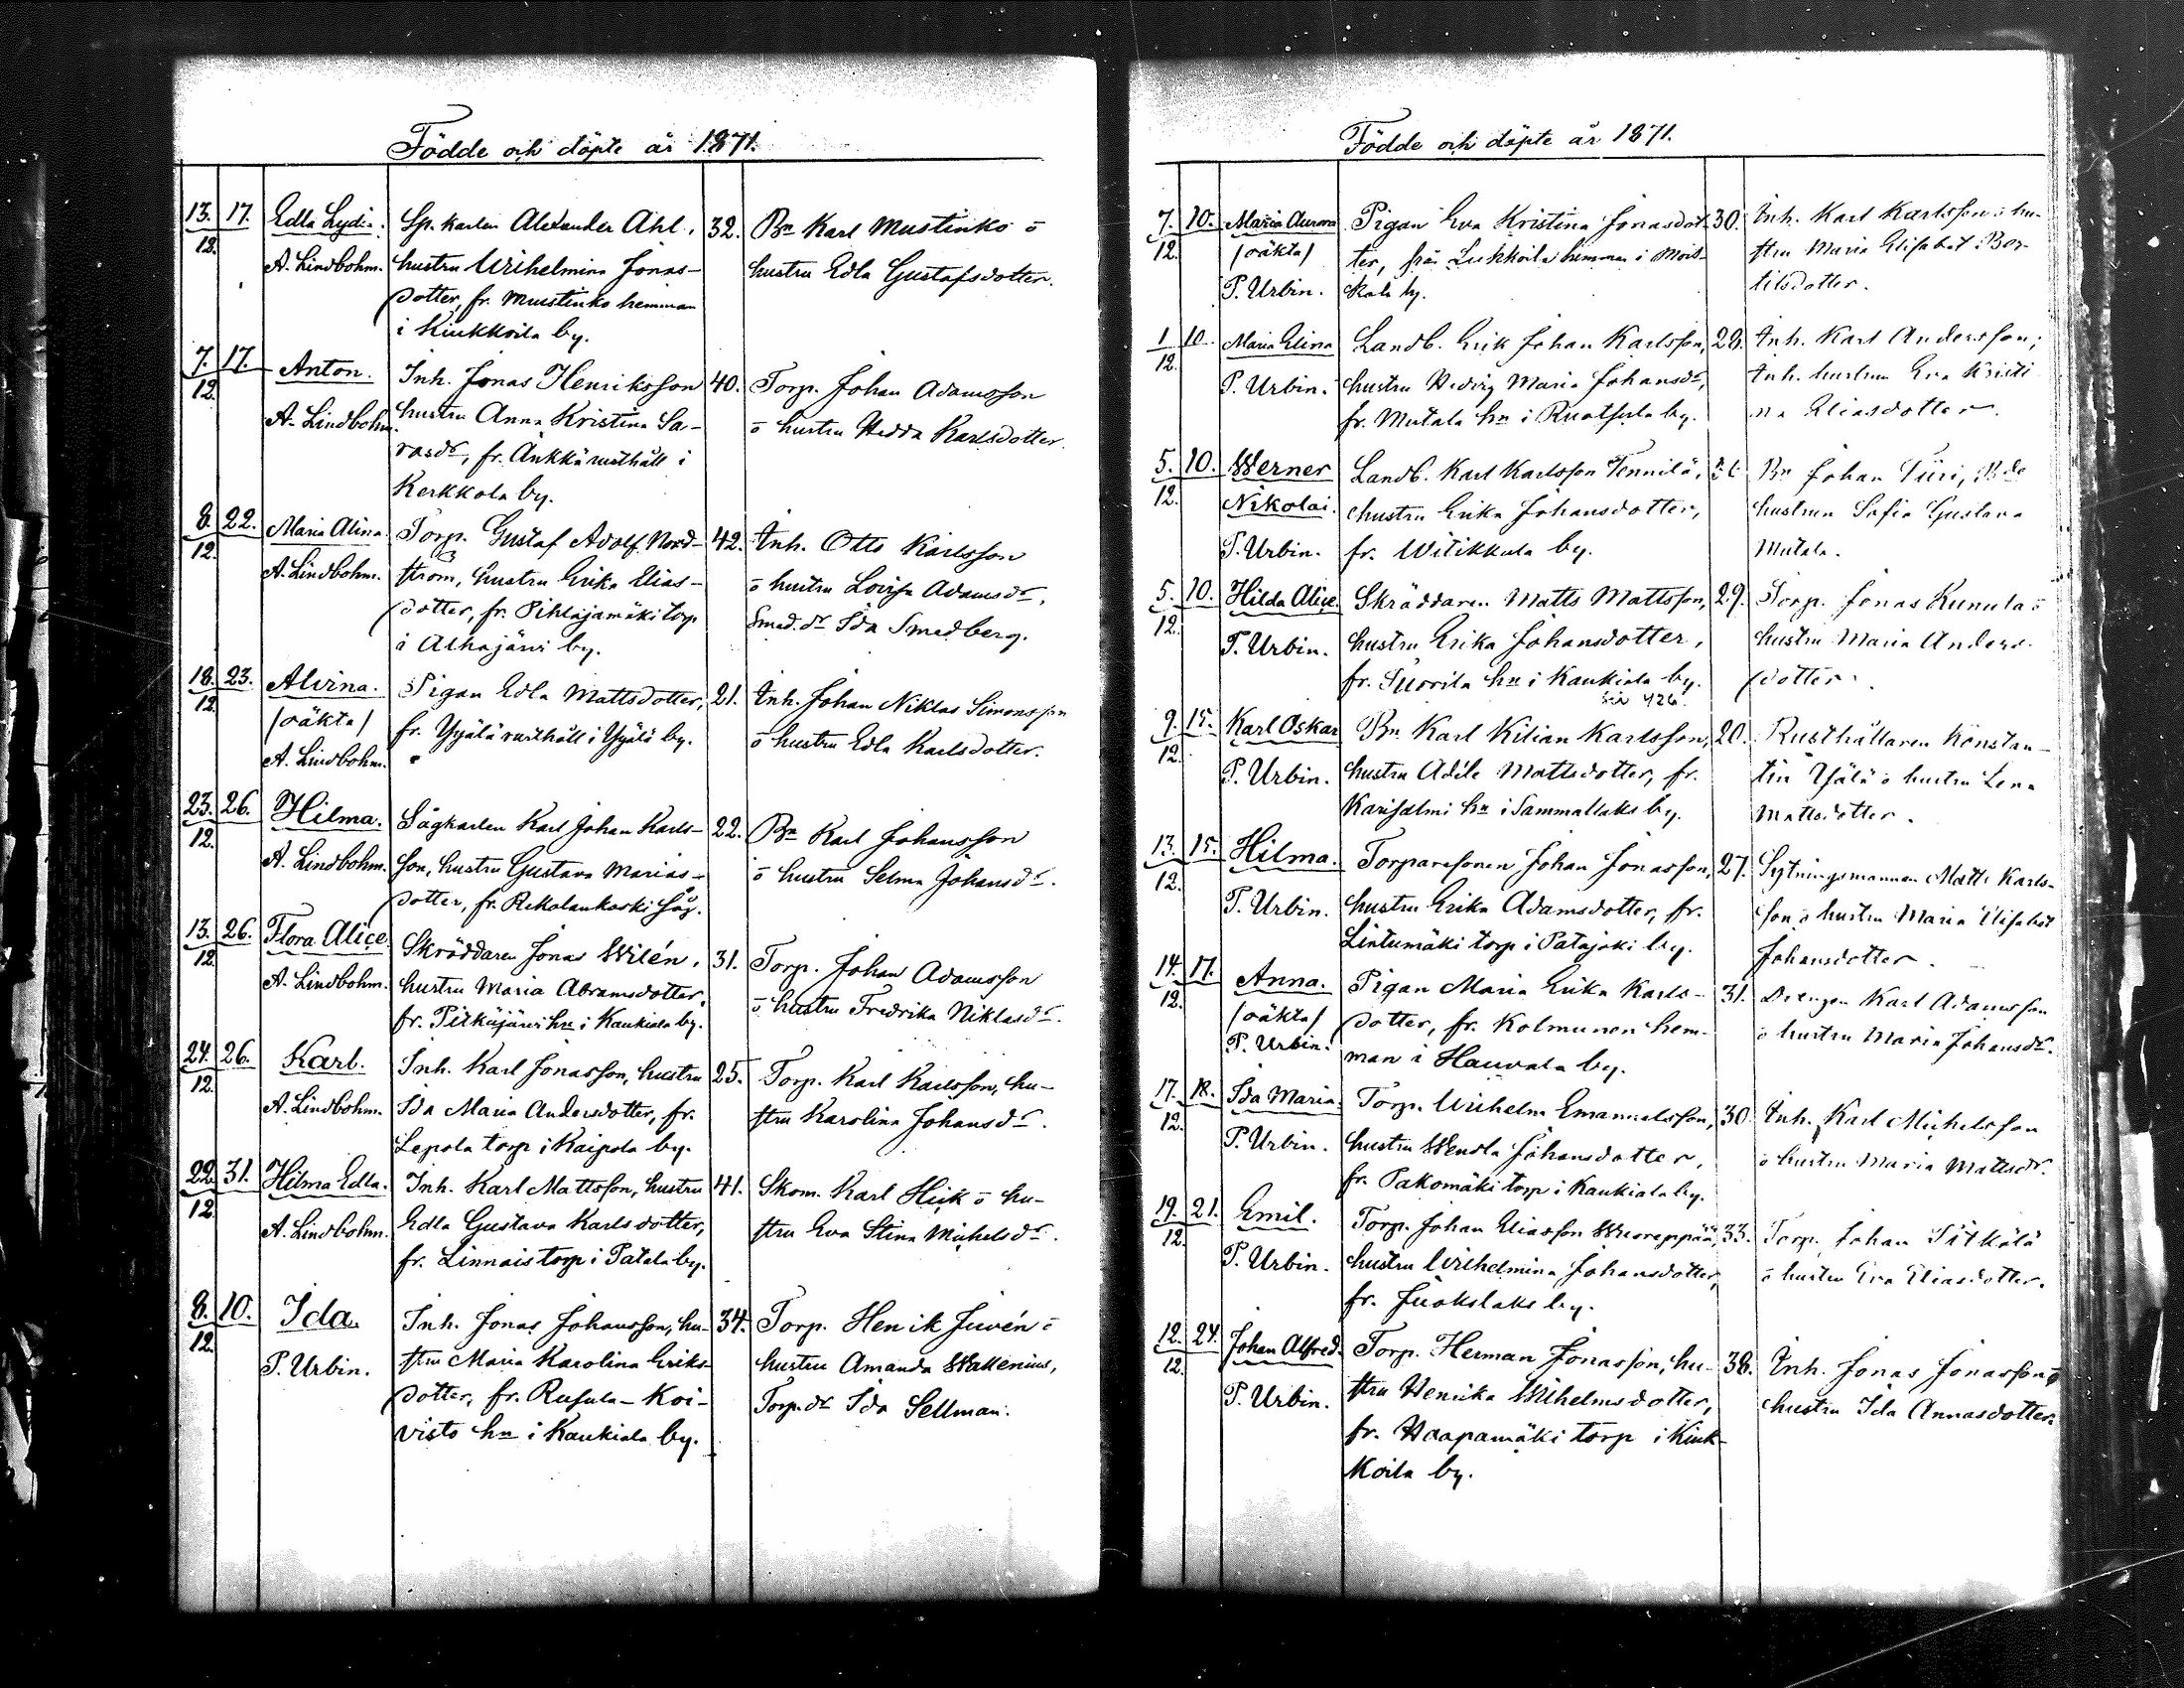 Födde och döpte år 1871.
13. 17. Edla Lydia. Sp. karlen Alexander Ahl, 32. Bn Karl Mustinko o
12. A. Lindbohm. hustru Wilhelmina Jonas- hustru Edla Gustafsdotter.
dotter, fr. Mustinko hemman
i Kiukkoila by.
7. 17. Anton. Inh. Jonas Henriksson 40. Torp. Johan Adamsson
12. A. Lindbohm. hustru Anna Kristina Sa- o hustru Hedda Karlsdotter.
rasdr, fr. Änkkä rusthåll i
Kerkkola by.
8. 22. Maria Alina. Torp. Gustaf Adolf Nord- 42. Inh. Otto Karlsson
12. A. Lindbohm. ström, hustru Erika Elias- o hustru Lovisa Adamsdr,
dotter, fr. Pihlajamäki torp Smed. dr Ida Smedberg.
i Alhajärvi by.
18. 23. Alvina. Pigan Edla Mattsdotter, 21. Inh. Johan Niklas Simonsson
12. /oäkta/ fr. Yijälä rusthåll i Yijälä by. o hustru Edla Karlsdotter.
A. Lindbohm.
23. 26. Hilma. Sågkarlen Karl Johan Karls- 22. Bn Karl Johansson
12. A. Lindbohm. son, hustru Gustava Marias- o hustru Selma Johansdr.
dotter, fr. Rekolankoski såg.
13. 26. Flora Alice. Skräddaren Jonas Wilén, 31. Torp. Johan Adamsson
12. A. Lindbohm. hustru Maria Abramsdotter, o hustru Fredrika Niklasdr.
fr. Pitkäjärvi hn i Kaukiala by.
24. 26. Karl. Inh. Karl Jonasson, hustru 25. Torp. Karl Karlsson, hu-
12. A. Lindbohm. Ida Maria Andersdotter, fr. stru Karolina Johansdr.
Lepola torp i Kaipola by.
22. 31. Hilma Edla. Inh. Karl Mattsson, hustru 41. Skom. Karl Hiik o hu-
12. A. Lindbohm. Edla Gustava Karlsdotter, stru Eva Stina Michelsdr.
fr. Linnais torp i Patala by.
8. 10. Ida. Inh. Jonas Johansson, hu- 34. Torp. Henrik Juvén o
12. P. Urbin. stru Maria Karolina Eriks- hustru Amanda Wallenius,
dotter, fr. Rusula-Koi- Torp. dr Ida Sellman.
visto hn i Kaukiala by.
Födde och döpte år 1871.
7. 10. Maria Aurora Pigan Eva Kristina Jonasdot- 30. Inh. Karl Karlsson o hu-
12. /oäkta/ ter, från Lukkoila hemman i Mois- stru Maria Elisabet Ber-
P. Urbin. kala by. tilsdotter.
1 10. Maria Elina Landb. Erik Johan Karlsson, 28. Inh. Karl Andersson,
12. P. Urbin. hustru Hedvig Maria Johansdr, Inh. hustrun Eva Kristi
fr. Mutala hn i Ruotsula by. na Eliasdotter.
5. 10. Werner Landb. Karl Karlsson Tennilä, Bn Johan Tiiri, Bde
12. Nikolai. hustru Erika Johansdotter, hustrun Sofia Gustava
P. Urbin. fr. Witikkala by. Mutala.
5. 10. Hilda Alice. Skräddaren Matts Mattsson, 29. Torp. Jonas Kunula o
12. P. Urbin. hustru Erika Johansdotter, hustru Maria Anders-
fr. Tuorila hn i Kaukiala by. dotter.
426.
9. 15. Karl Oskar Bn Karl Kilian Karlsson, 20. Rusthållaren Konstan-
12. P. Urbin. hustru Adéle Mattsdotter, fr. tin Yjälä o hustru Lena
Karisalmi hn i Sammallaks by. Mattsdotter.
13. 15. Hilma. Torparesonen Johan Jonasson, 27. Sytningsmannen Matts Karls-
12. P. Urbin. hustru Erika Adamsdotter, fr. son o hustru Maria Elisabet
Lintumäki torp i Patajoki by. Johansdotter.
14. 17. Anna. Pigan Maria Erika Karls- 31. Drengen Karl Adamsson
12. /oäkta/ dotter, fr. Kolmunen hem- o hustru Maria Johansdr.
P. Urbin. man i Hauvala by.
17. 18. Ida Maria. Torp. Wilhelm Emanuelsson, 30. Inh. Karl Michelsson
12. P. Urbin. hustru Wendla Johansdotter, o hustru Maria Mattsdr.
fr. Pakomäki torp i Kaukiala by.
19. 21. Emil. Torp. Johan Eliasson Wuorenpää, 33. Torp. Johan Pitkälä
12. P. Urbin. hustru Wilhelmina Johansdotter, o hustru Eva Eliasdotter.
fr. Juokslaks by.
12. 24. Johan Alfred. Torp. Herman Jonasson, hu- 38. Inh. Jonas Jonasson o
12. P. Urbin. stru Henrika Wilhelmsdotter, hustru Ida Annasdotter.
fr. Haapamäki torp i Kiuk-
koila by.